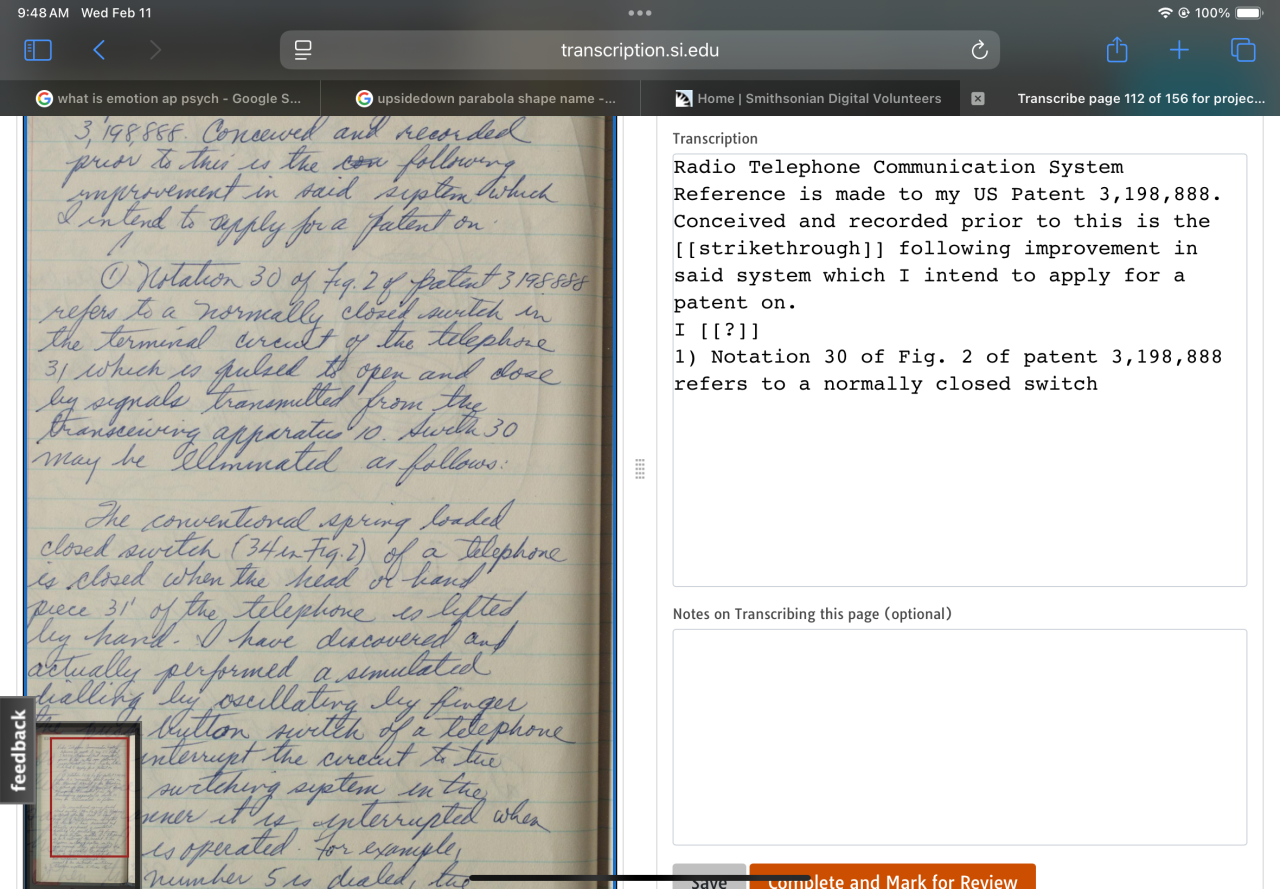 9:48 AM Wed Feb 11
100%
transcription.si.edu
what is emotion ap psych - Google S...
upsidedown parabola shape name -...
Home | Smithsonian Digital Volunteers
Transcribe page 112 of 156 for projec...
3,198,888. Conceived and recorded
prior to this is the con following
improvement in said system which
I intend to apply for a patent on.
① Notation 30 of Fig. 2 of patent 3198888
refers to a normally closed switch in
the terminal circuit of the telephone
31 which is pulsed to open and close
by signals transmitted from the
transceiving apparatus 10. Switch 30
may be eliminated as follows:
The conventional spring loaded
closed switch (34 in Fig. 2) of a telephone
is closed when the head or hand
piece 31' of the telephone is lifted
by hand. I have discovered and
actually performed a simulated
dialling by oscillating by finger
button switch of a telephone
interrupt the circuit to the
switching system in the
it is interrupted when
is operated. For example,
number 5 is dialed, the
feedback
Transcription
Radio Telephone Communication System
Reference is made to my US Patent 3,198,888.
Conceived and recorded prior to this is the
[[strikethrough]] following improvement in
said system which I intend to apply for a
patent on.
I [[?]]
1) Notation 30 of Fig. 2 of patent 3,198,888
refers to a normally closed switch
Notes on Transcribing this page (optional)
Save
Complete and Mark for Review